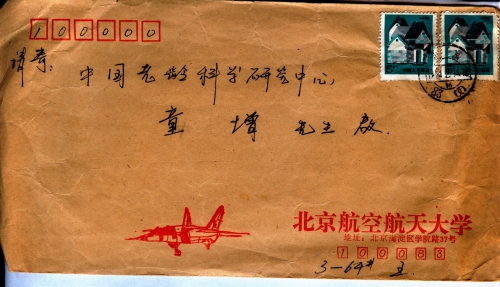 100000
请寄：中国老龄科学研究中心，
童 增 先生 启
北京航空航天大学
地址：北京海淀区学院路37号
100083
3-64# 王